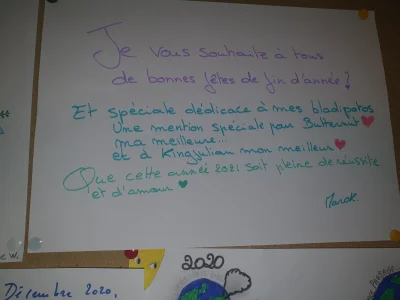 Je vous souhaite à tous
de bonnes fêtes de fin d'année !
Et spéciale dédicace à mes bladipotos
Une mention spéciale pour Butternut
ma meilleure...
et à Kingjulian mon meilleur
Que cette année 2021 soit pleine de réussite
et d'amour
Marok.
e W.
2020
Décembre 2020,